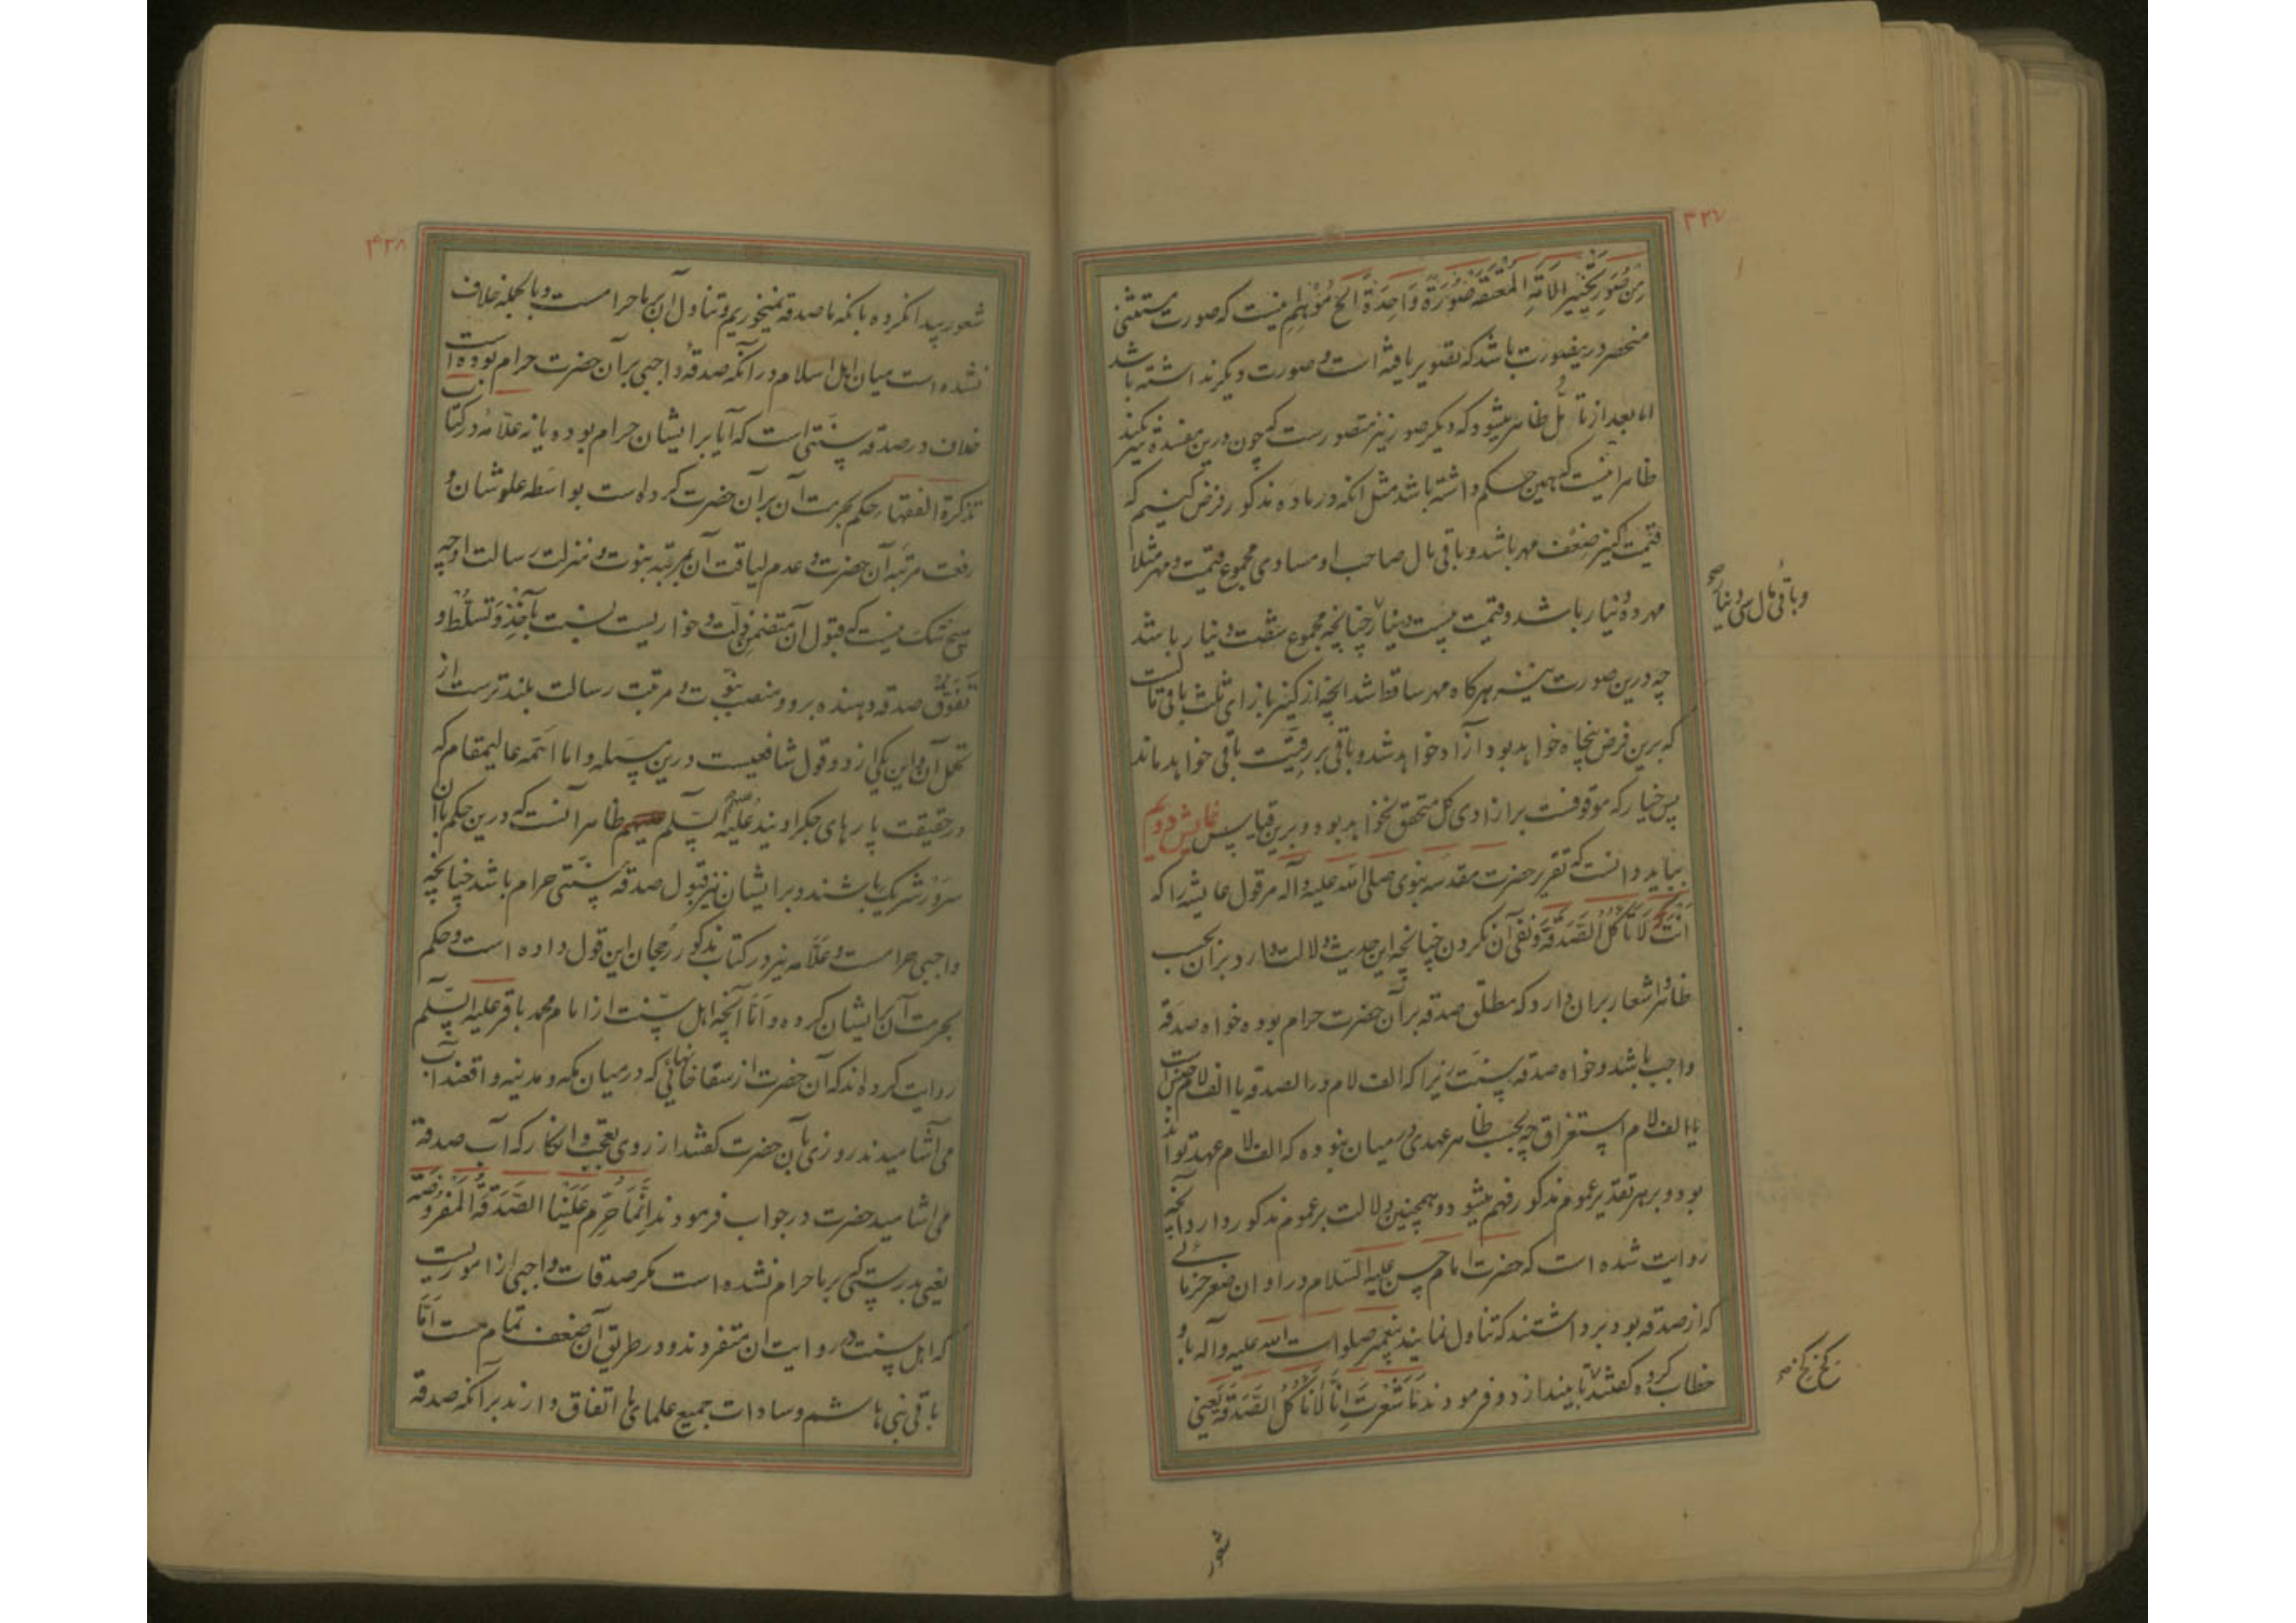 ۴۲۷
من صور تخییر الامة المعتقه صورة واحدة الخ موهم اینست که صورت مستثنی
منحصر درینصورت باشد که تصویر یافته است و صورت دیگر نداشته باشد
اما بعد از تأمل ظاهر میشود که دیگر صور نیز متصورست که چون درین مفسده نیز
ظاهرا نیست که همین حکم داشته باشد مثل آنکه در ماده مذکور فرض کنیم که
قیمت کنیز ضعف مهر باشد و باقی مال صاحب او مساوی مجموع قیمت و مهر مثلا
مهر ده دینار باشد و قیمت بیست دینار چنانچه مجموع شصت دینار باشد
و باقی مال سی دینار صح
چه درین صورت نیز هرکاه مهر ساقط شد آنچه از کنیز بازای ثلث باقی
که برین فرض پنجاه خواهد بود آزاد خواهد شد و باقی بر رقیت باقی خواهد ماند
پس خیار که موقوفست بر ازادی کل متحقق نخواهد بود و برین قیاس نمایش دویم
بباید دانست که تقریر حضرت مقدسه نبوی صلی الله علیه وآله مر قول عایشه را که
انت لا تاکل الصدقة و نفی آن نکردن چنانچه این حدیث دلالت دارد بران بحسب
ظاهر اشعار بران دارد که مطلق صدقه بر آن حضرت حرام بوده خواه صدقه
واجب باشد و خواه صدقه سنت زیرا که الف لام در الصدقه یا الف لام جنس است
یا الف لام استغراق چه بحسب ظاهر عهدی در میان نبوده که الف لام عهد تواند
بود و بر هر تقدیر عموم مذکور فهم میشود و همچنین دلالت بر عموم مذکور دارد آنچه
روایت شده است که حضرت امام حسن علیه السلام در اوان صغر خرمائی
که از صدقه بود برداشتند که تناول نمایند پیغمبر صلوات الله علیه وآله باو
خطاب کرده گفتند تا بیندازد و فرمودند ما شعرت انا لا ناکل الصدقة یعنی
کخ کخ صح
شعور
۴۲۸
شعور پیدا نکرده بانکه ما صدقه نمیخوریم و تناول آن بر ما حرامست و بالجمله خلاف
نشده است میان اهل اسلام در آنکه صدقهٔ واجبی بر آن حضرت حرام بوده است
خلاف در صدقه سنتی است که آیا بر ایشان حرام بوده یا نه علامه در کتاب
تذکرة الفقهاء حکم بحرمت آن بر آن حضرت کرده است بواسطه علو شان و
رفعت مرتبه آن حضرت و عدم لیاقت آن بمرتبه نبوت و منزلت رسالت او چه
هیچ شک نیست که قبول آن متضمن ذلت و خواریست نسبت بآخذ و تسلط و
تفوق صدقه دهنده برو و منصب نبوت و مرتبت رسالت بلندترست از
تحمل آن و این یکی از دو قول شافعیست درین مسئله و اما ائمه عالیمقام که
در حقیقت پارهای جکر او یند علیه السلم ظاهرا آنست که درین حکم با آن
سرور شریک باشند و بر ایشان نیز قبول صدقه سنتی حرام باشد چنانچه
واجبی حرامست و علامه نیز در کتاب مذکور رجحان این قول داده است و حکم
بحرمت آن بایشان کرده و اما آنچه اهل سنت از امام محمد باقر علیه السلم
روایت کرده اند که آن حضرت از سقاخانهائی که در میان مکه و مدینه واقعند آب
می آشامیدند روزی بآن حضرت کفتند از روی تعجب و انکار که آب صدقه
می اشامید حضرت در جواب فرمودند انما حرم علینا الصدقة المفروضة
یعنی بدرستی که بر ما حرام نشده است مکر صدقات واجبی از اموریست
که اهل سنت در روایت ان متفردند و در طریق آن ضعف تمام هست اما
باقی بنی هاشم و سادات جمیع علمای ما اتفاق دارند بر آنکه صدقه